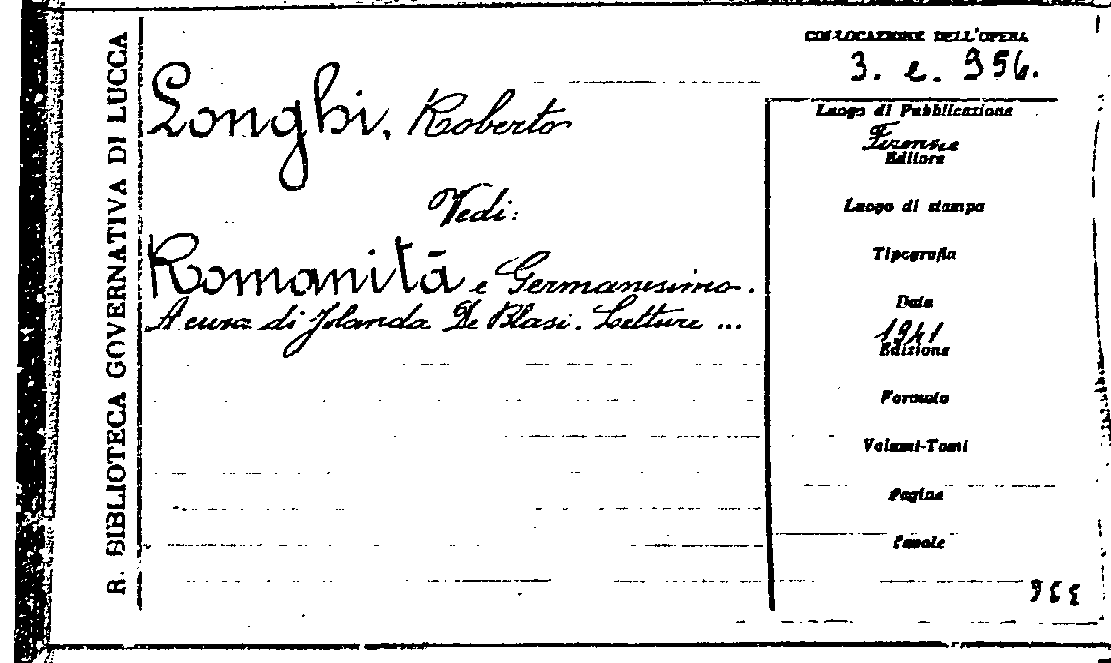 R. BIBLIOTECA GOVERNATIVA DI LUCCA
COLLOCAZIONE DELL'OPERA
3. e. 956.
Longhi, Roberto
Vedi:
Romanità e Germanesimo.
A cura di Jolanda De Blasi. Letture ...
Luogo di Pubblicazione
Firenze
Editore
Luogo di stampa
Tipografia
Data
1941
Edizione
Formato
Volumi-Tomi
Pagine
Tavole